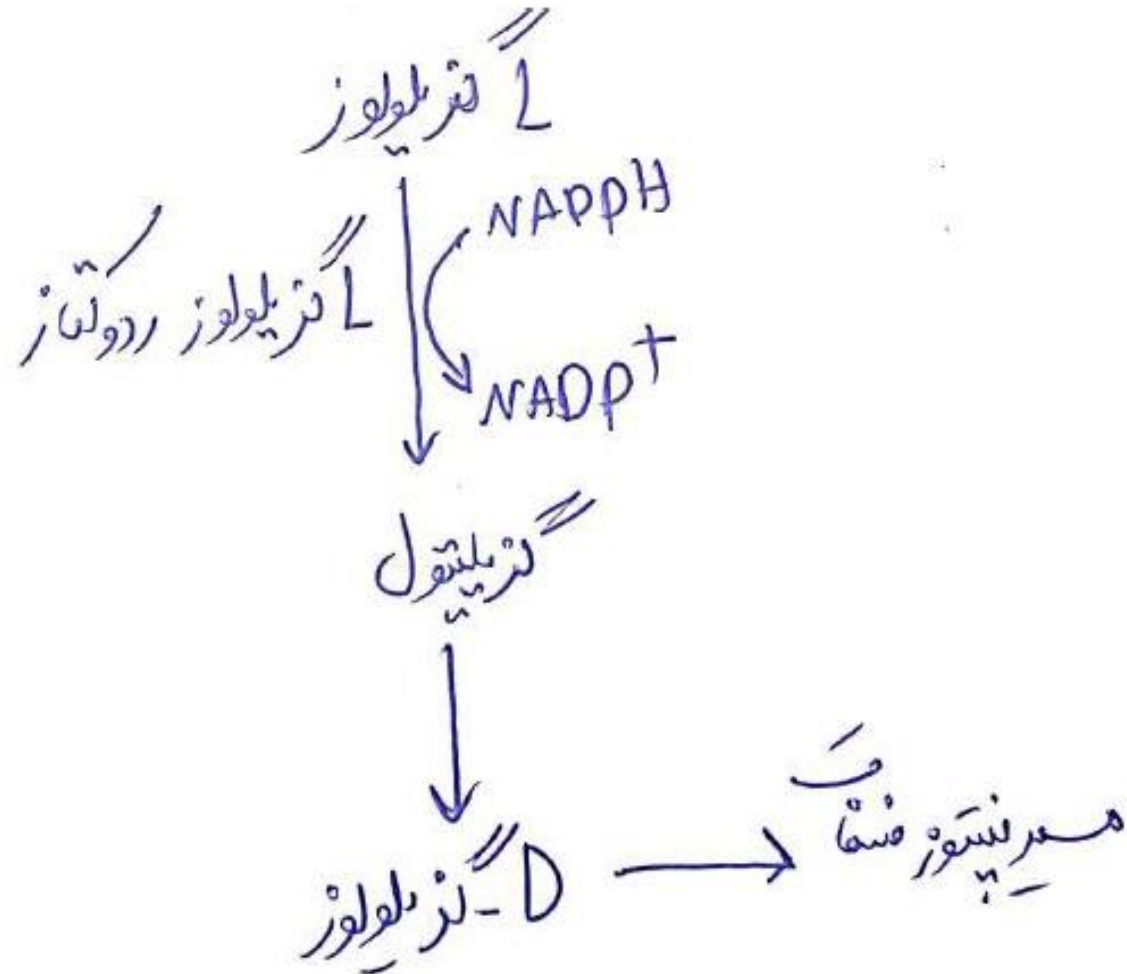 L گزیلولوز
NADPH
L گزیلولوز ردوکتاز
NADP+
گزیلیتول
D-گزیلولوز
مسیر پنتوز فسفات